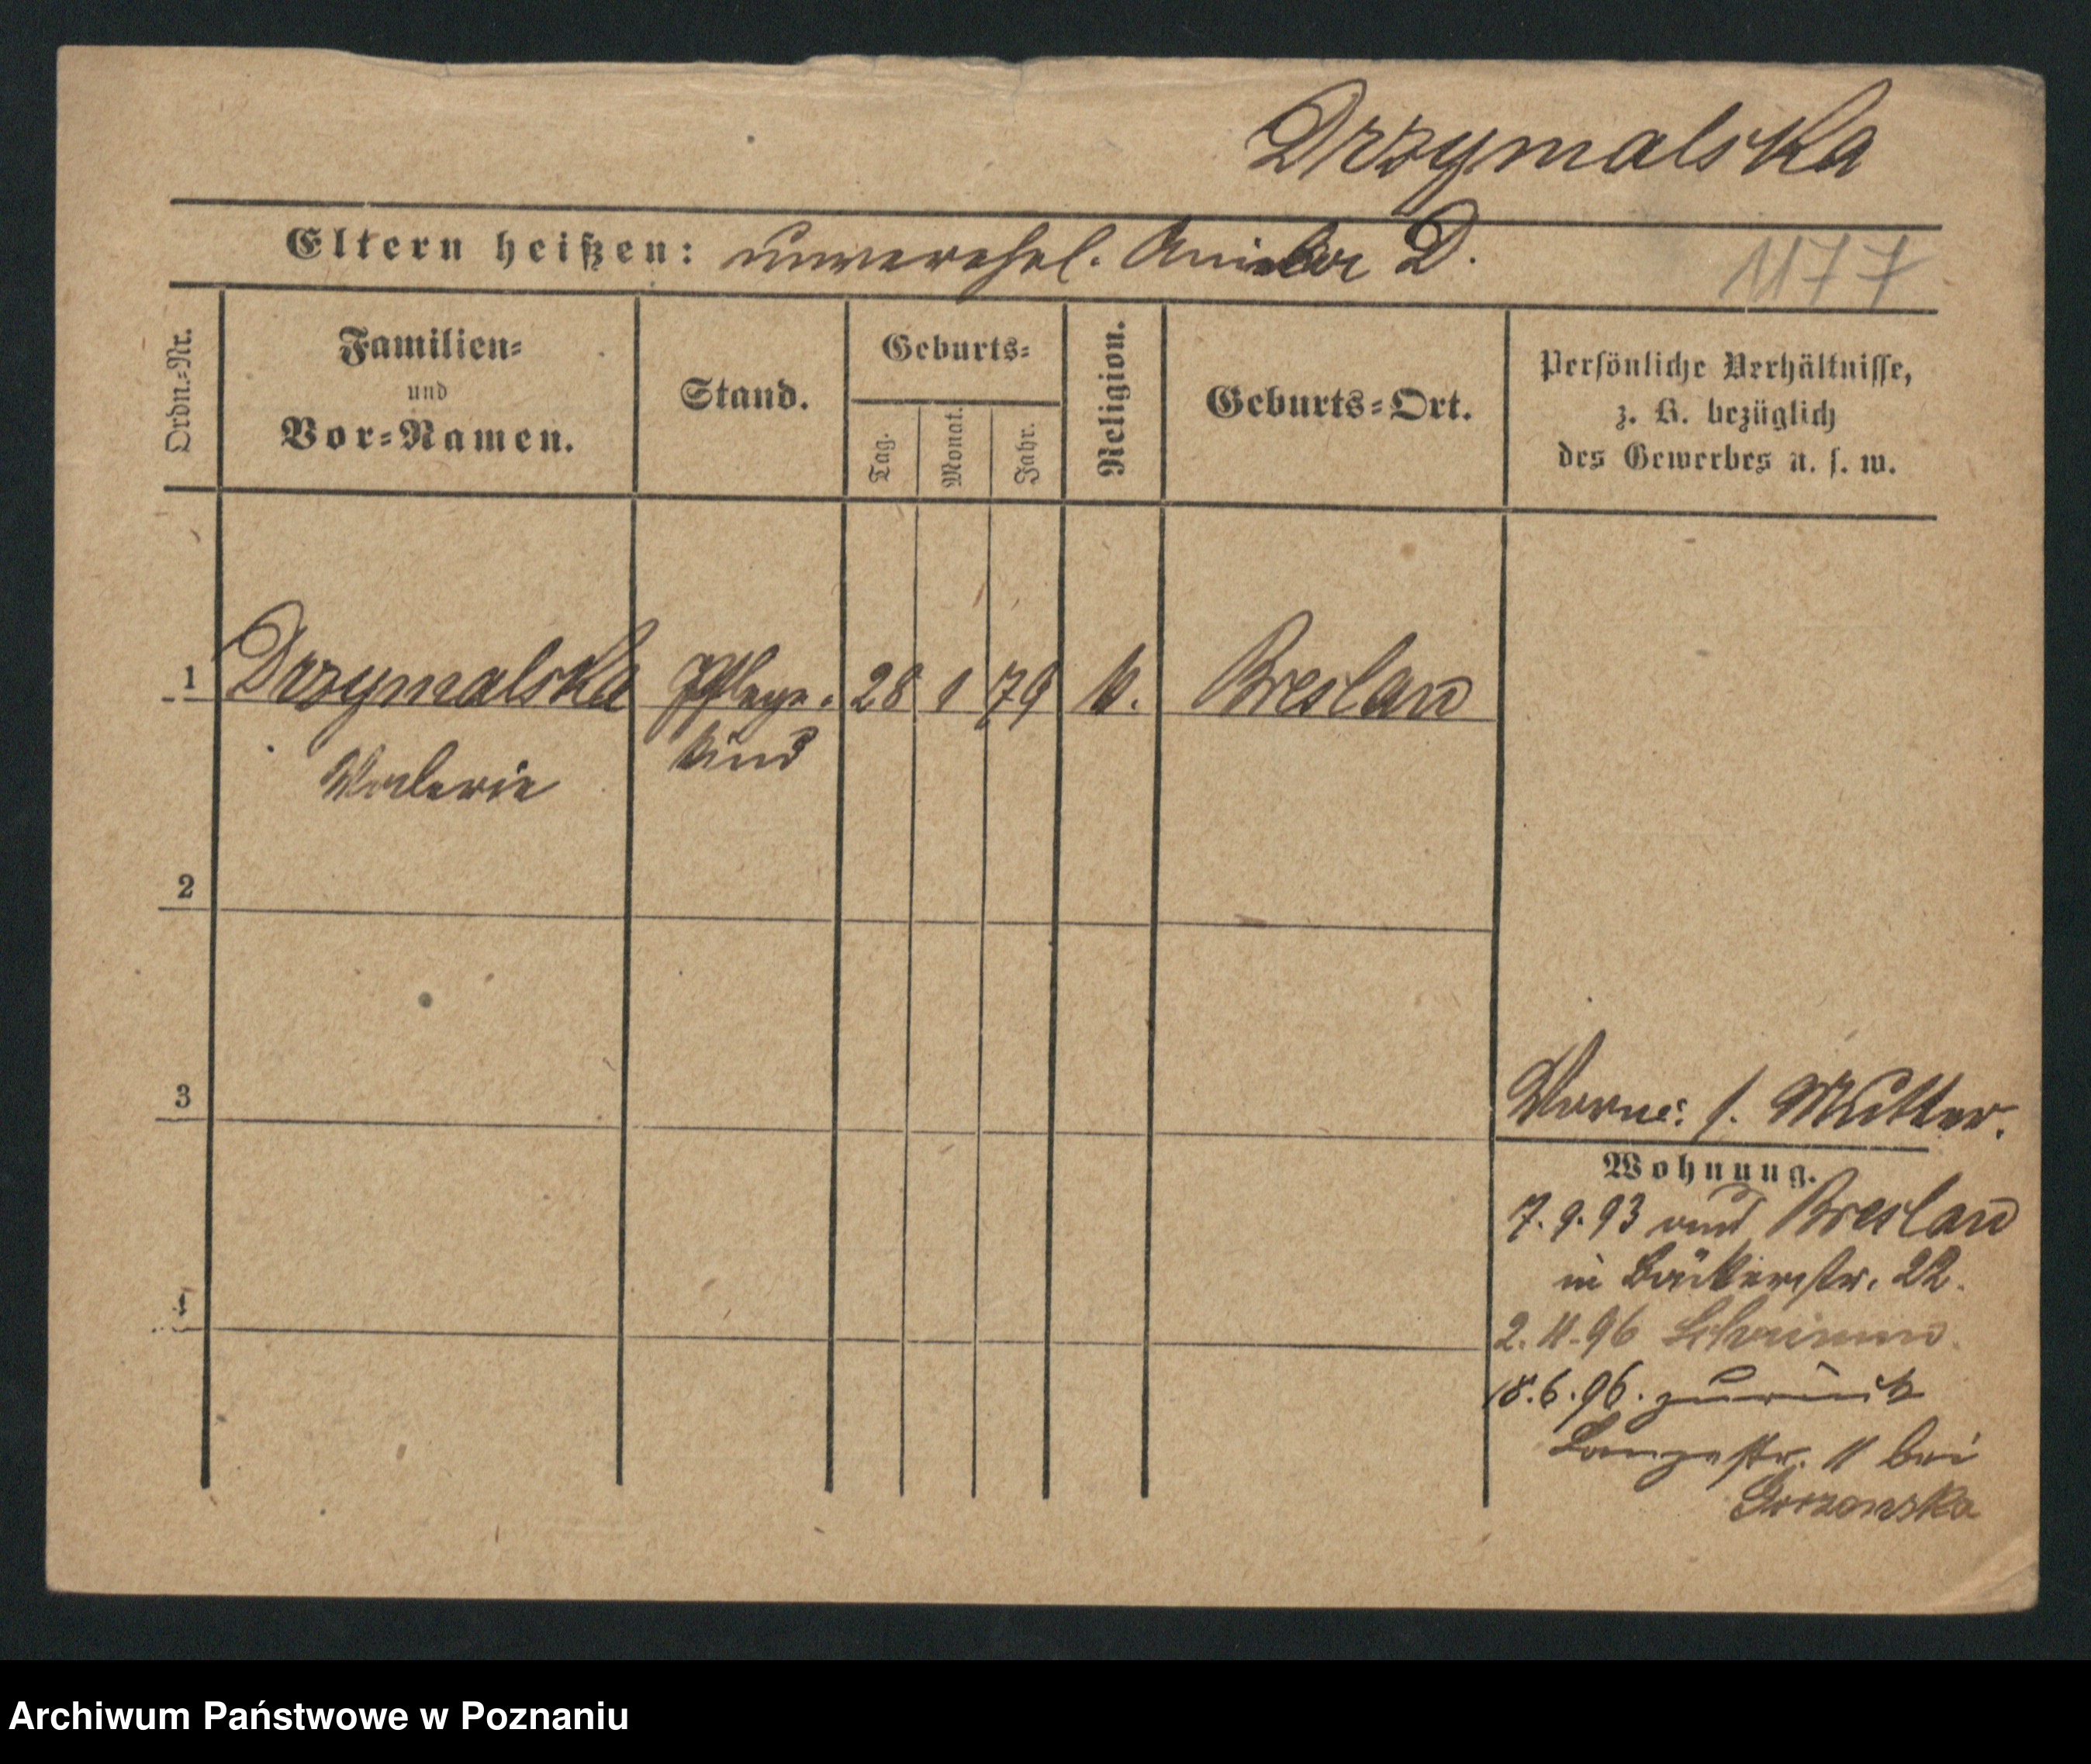 Drzymalska
Eltern heißen: unverehel. D.
1177
Ordn.-Nr.
Familien-
und
Vor-Namen.
Stand.
Geburts-
Tag.
Monat.
Jahr.
Religion.
Geburts-Ort.
Persönliche Verhältnisse,
z. B. bezüglich
des Gewerbes u. s. w.
1 Drzymalska Pflege- 28 1 79 k. Breslau
Valerie kind
2
3
4
Vorm: s. Mutter.
Wohnung.
7. 9. 93 aus Breslau
in Bäckerstr. 22.
2. 4. 96 Schrimm.
18. 6. 96. zurück
Langestr. 11 bei
Archiwum Państwowe w Poznaniu